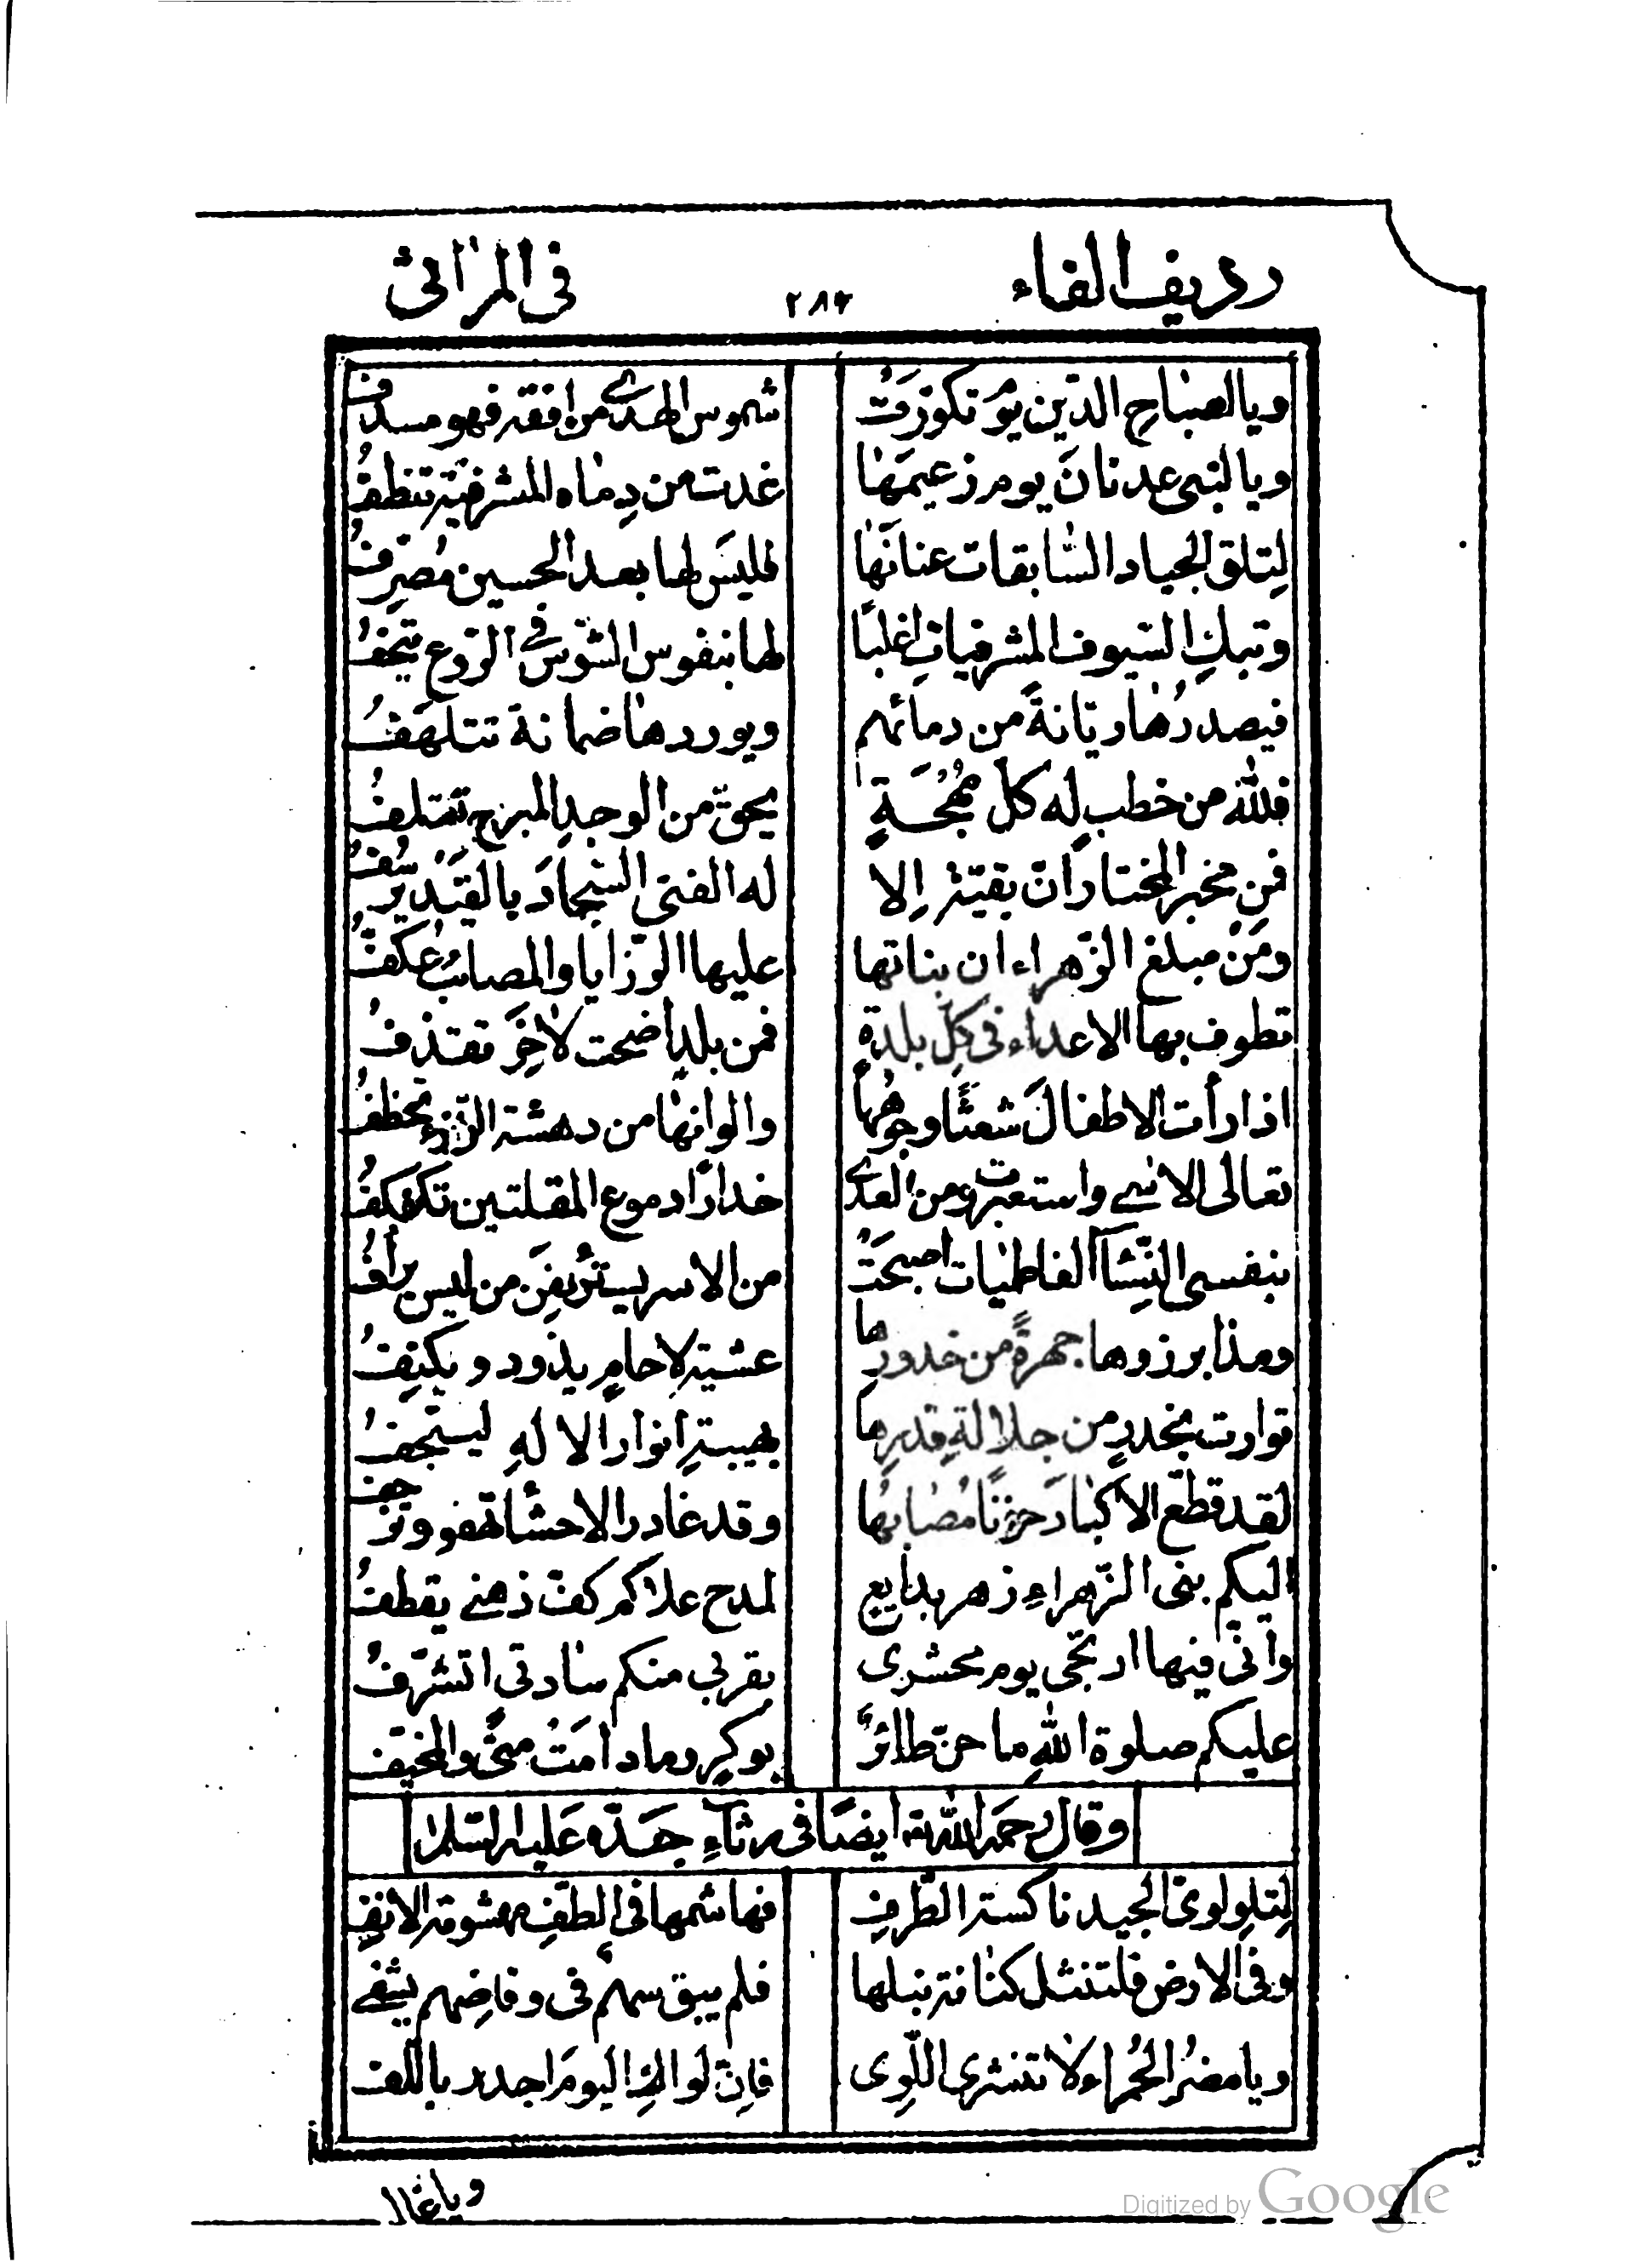 رديف الفاء ٢٨٤ فى المراثى
ويا لصباح الدّين يوم تكوّرت شموس الهدى من افقه فهو مسدف
ويا لبنى عدنان يوم زعيمها غدت من دماه المشرفيّة تنظف
لتلق الجياد السّابقات عنانها فليس لها بعد الحسين مصرّف
وتبك السّيوف المشرفيات اغلبا لها بنفوس الشّوس فى الرّوع يتحف
فيصدرها ريّانة من دمائهم ويوردها ضمانة تتلهّف
فلله من خطب له كلّ مهجة يحقّ من الوجد المبرّح تتلف
فمن مخبر المختار انّ بقيّة الا له الفتى السّجاد بالقيد يرسف
ومن مبلغ الزّهراء ان بناتها عليها الرّزايا والمصائب عكّف
تطوف بها الاعداء فى كلّ بلدة فمن بلد اضحت لاخر تقذف
اذا رأت الاطفال شعثا وجوهها والوانها من دهشة الرّزء تخطف
تعالى الاسى واستعبرت ومن العدى حذارا دموع المقلتين تكفكف
بنفسى النّسآ الفاطميات اصبحت من الاسر يسترئفن من ليس يرأف
ومذ ابرزوها جهرة من خدورها عشيّة لا حام يذود ويكنف
توارت بخدر من جلالة قدرها بهيبة انوار الاله ليسجف
لقد قطّع الاكباد حزنا مصابها وقد غادر الاحشا تهفو وترجف
اليكم بنى الزّهراء زهر بدايع لمدح علاكم كفّ ذهنى يقطف
وانّى فيها ارتجى يوم محشرى بقربى منكم سادتى اتشرّف
عليكم صلوة الله ما حنّ طائر بوكر وما دامت منى والمخيّف
وقال رحمه الله ايضا فى رثآء جدّه عليه السّلام
لتلو لوىّ الجيد ناكسة الطّرف فهاشمها فى الطّف مهشومة الانف
وفى الارض فلتنثل كنانة نبلها فلم يبق سهم فى وفاضهم يشفى
ويا مضر الحمراء لا تنشرى اللّوى فانّ لواك اليوم اجدر باللّف
ويا غال
Digitized by Google